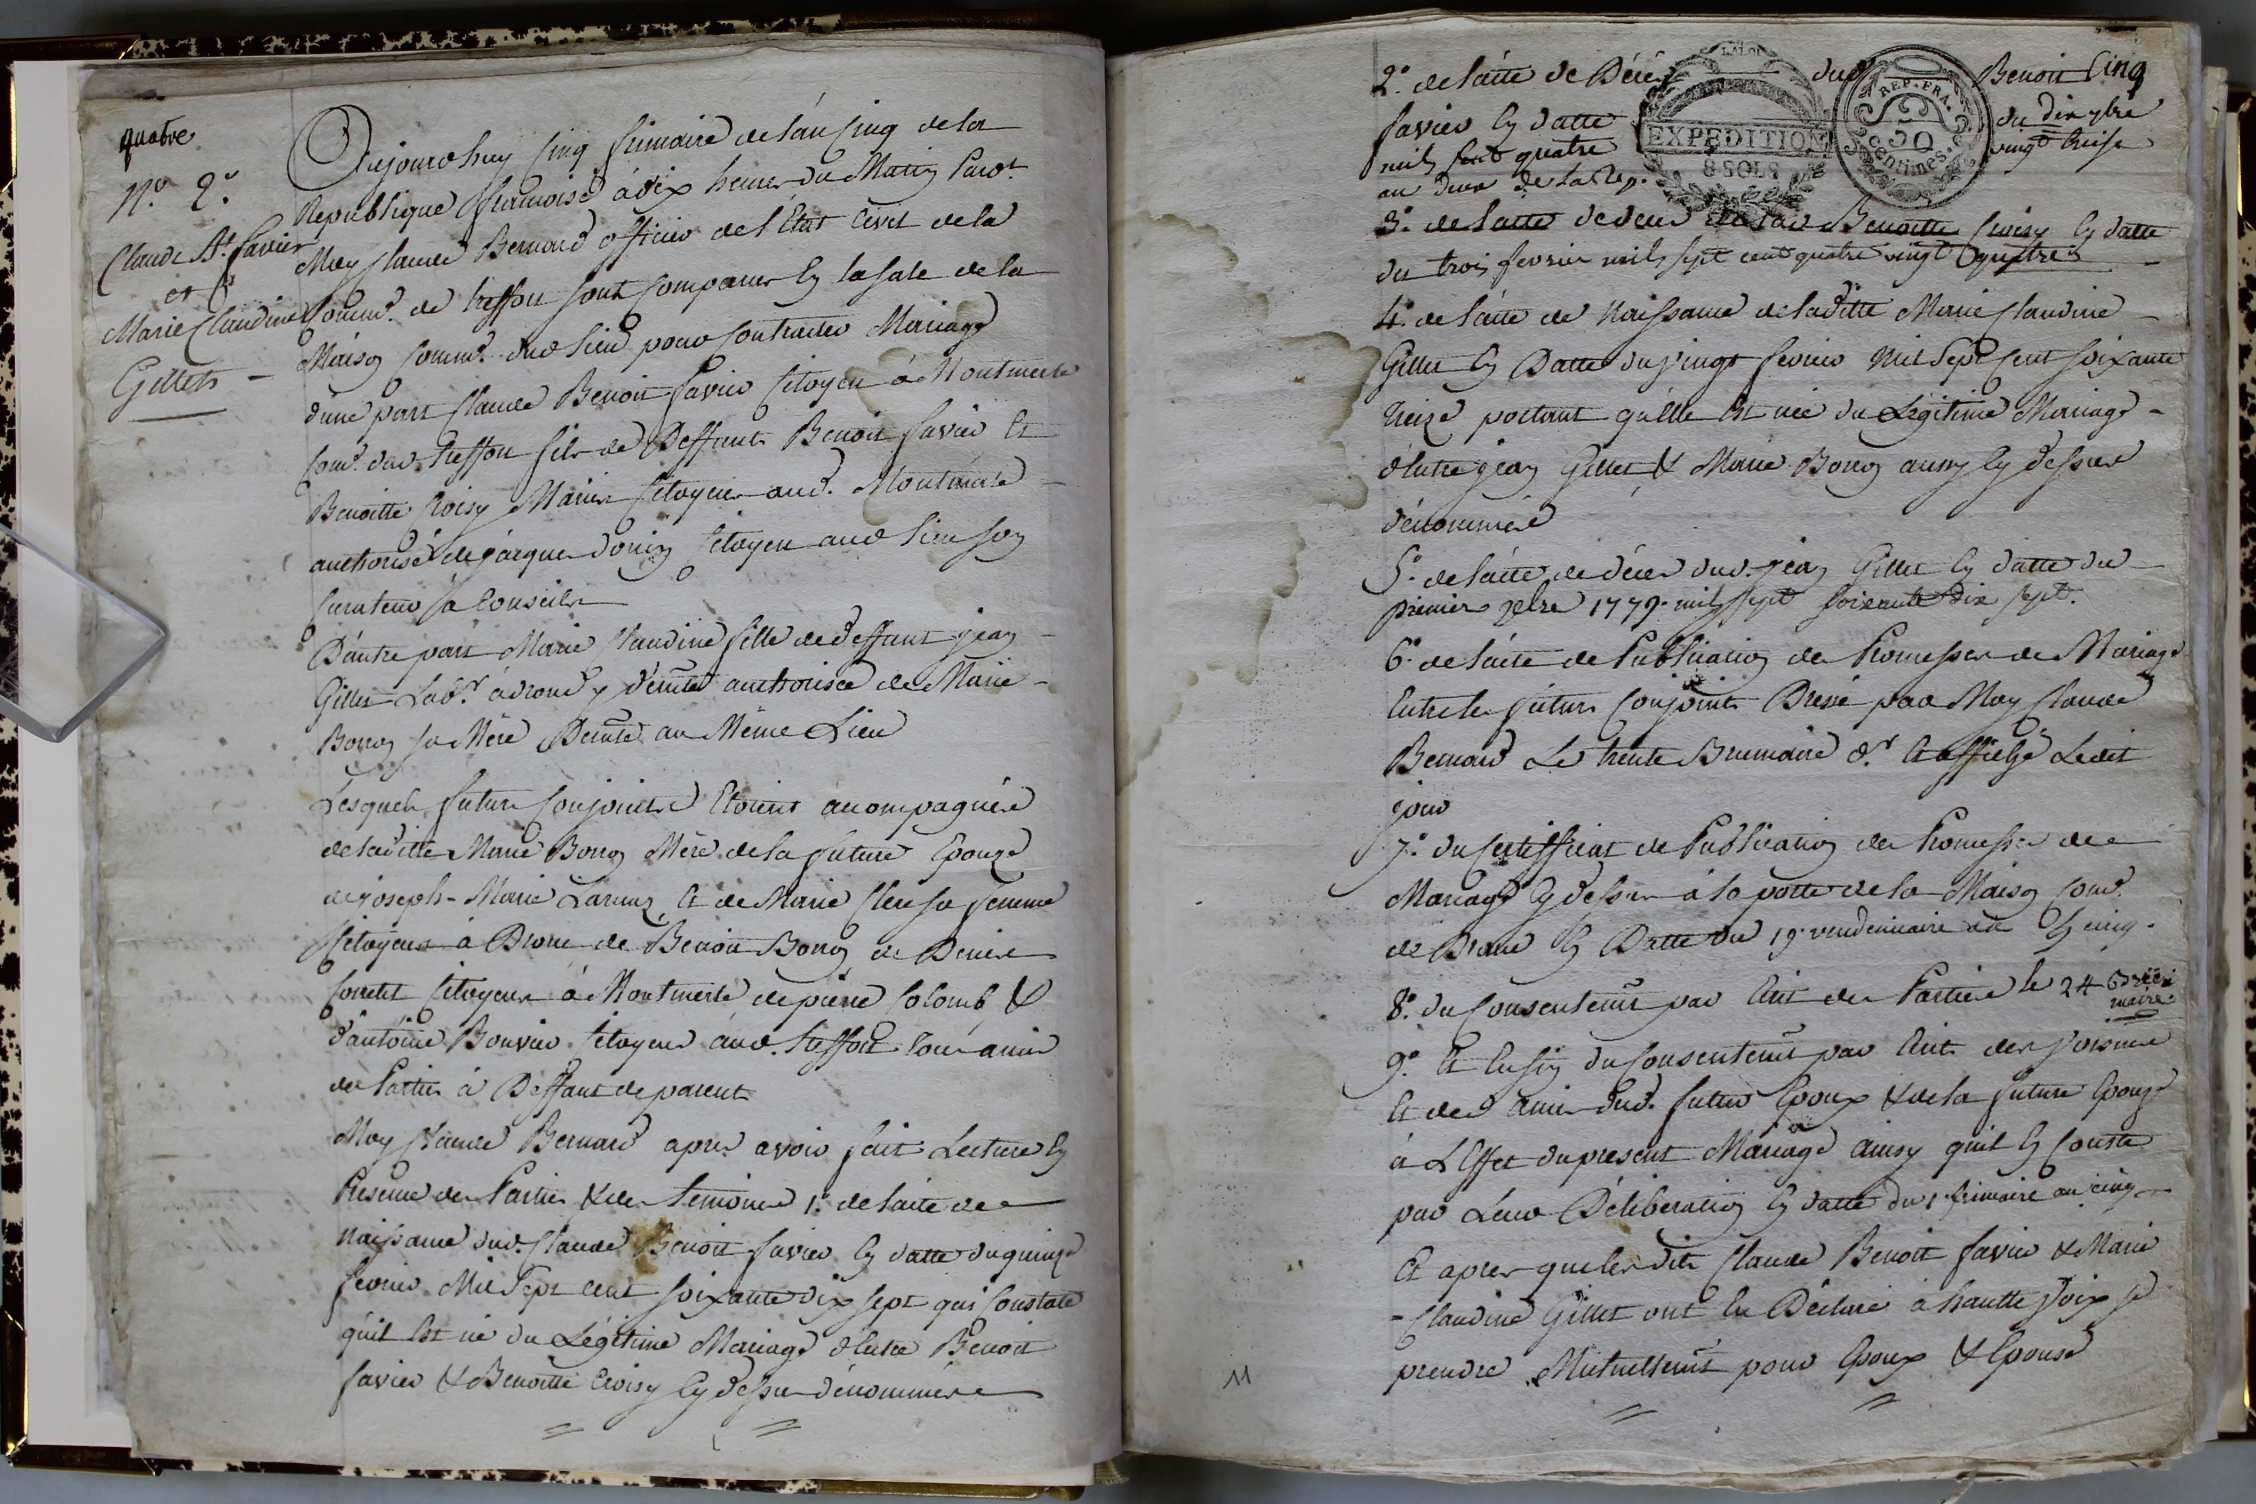 quatre
N.° 2.°
Claude B.t Favier
et
Marie Claudine
Gillet
Aujourdhuy Cinq frimaire de l'an Cinq de la
Republique francoise à dix heures du Matin Pardt
Moy Claude Bernard officier de l'Etat Civil de la
Comm.e de treffort sont Comparus En la sale de la
Maison Comm.e dud lieu pour Contracter Mariage
d'une part Claude Benoit favier Citoyen à Montmerle
Com.e dud. treffort fils de Deffunts Benoit favier Et
Benoitte Croisy Mariés Citoyens aud. Montmerle
authorisé de jacques donin Citoyen aud lieu son
Curateur à Conseils
D'autre part Marie Claudine fille de deffunt jean
Gillet Lab.r à drom y demte authorisée de Marie
Borron sa Mère Demte au Même Lieu
Lesquels futurs Conjoints Etoient acompagnés
de laditte Marie Borron Mère de la future Epouze
de joseph-Marie Laruaz Et de Marie Clere sa femme
Citoyens à Drom de Benoit Borron de Denis
Corretet Citoyens à Montmerle de pierre Colomb &
d'antoine Bouvier Citoyens aud. treffort tous amis
des Parties à Deffaut de parents
Moy Claude Bernard apres avoir fait Lecture En
Presence des Parties & des temoins 1.° de l'acte de
Naissance dud. Claude Benoit favier En datte du quinze
fevrier Mil Sept cent soixante dix sept qui Constate
qu'il Est né du Légitime Mariage d'Entre Benoit
favier & Benoitte Croisy Cy dessus dénommés
2.° de l'acte de Décès dud Benoit Cinq
favier En datte du dix 9bre
mil sept quatre vingt treise
an deux de la Rep.
LA LOI
EXPEDITION
8 SOLS
REP. FRA.
50
Centimes.
3.° de l'acte de deces de lad Benoitte Croisy En datte
du trois fevrier mil sept cent quatre vingt quatre
4.° de l'acte de Naissance de laditte Marie Claudine
Gillet En Datte du Vingt fevrier Mil Sept Cent soixante
treize portant qu'Elle Est née du Légitime Mariage
d'Entre jean Gillet & Marie Borron aussy Cy dessus
dénommés
5.° de l'acte de décès dud. jean Gillet En datte du
premier 7bre 1779. mil sept soixante dix sept.
6.° de l'acte de Publication de Promesses de Mariage
Entre les futurs Conjoints Dressé par Moy Claude
Bernard Le trente Brumaire d.r Et affiché Ledit
jour
7.° du Certifficat de Publication des Promesses de
Mariage Cy dessus à la porte de la Maison Com.e
de Drome En Datte du 19. vendemiaire an cinq.
8.° du Consentemt par Ecrit des Parties le 24 Brumaire
9.° Et Enfin du Consentemt par Ecrit des Voisins
Et des Amis dud. futur Epoux & de la future Epouze
à L'Effet du present Mariage ainsy quil En Conste
par Leur Déliberation En datte du 1.r frimaire an cinq
Et apres que lesdits Claude Benoit favier & Marie
Claudine Gillet ont Eu Déclaré à haute Voix se
prendre Mutuellemt pour Epoux & Epouse
11